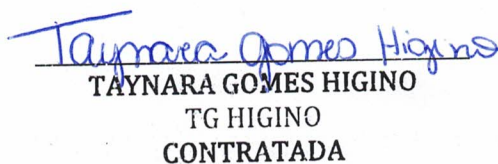 Taynara Gomes Higino
TAYNARA GOMES HIGINO
TG HIGINO
CONTRATADA